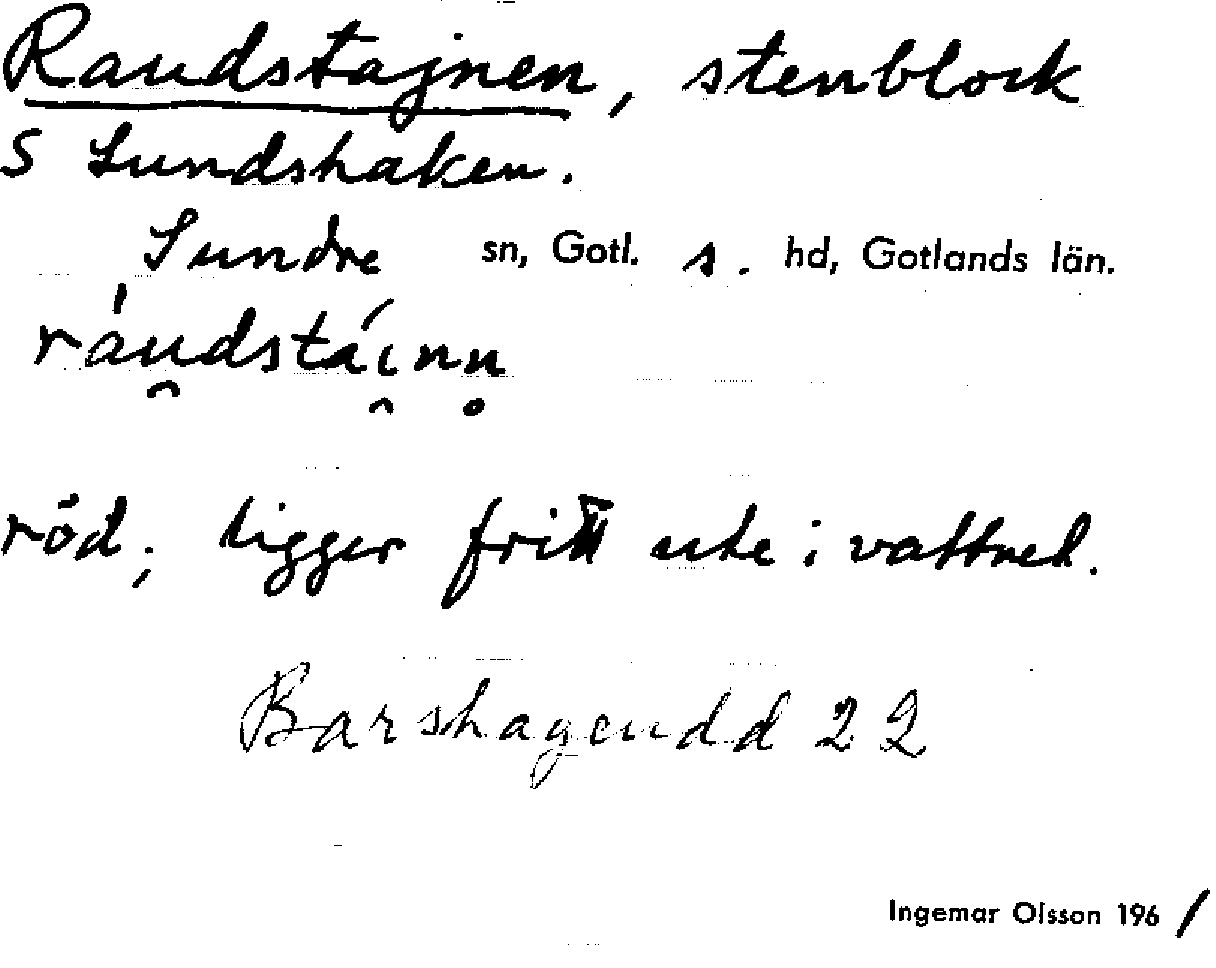 Raudstajnen, stenblock
S Sundshaken.
Sundre sn, Gotl. s. hd, Gotlands län.
ráu̯dstái̯nn̥
röd; ligger fritt ute i vattnet.
Barshageudd 22
Ingemar Olsson 196/